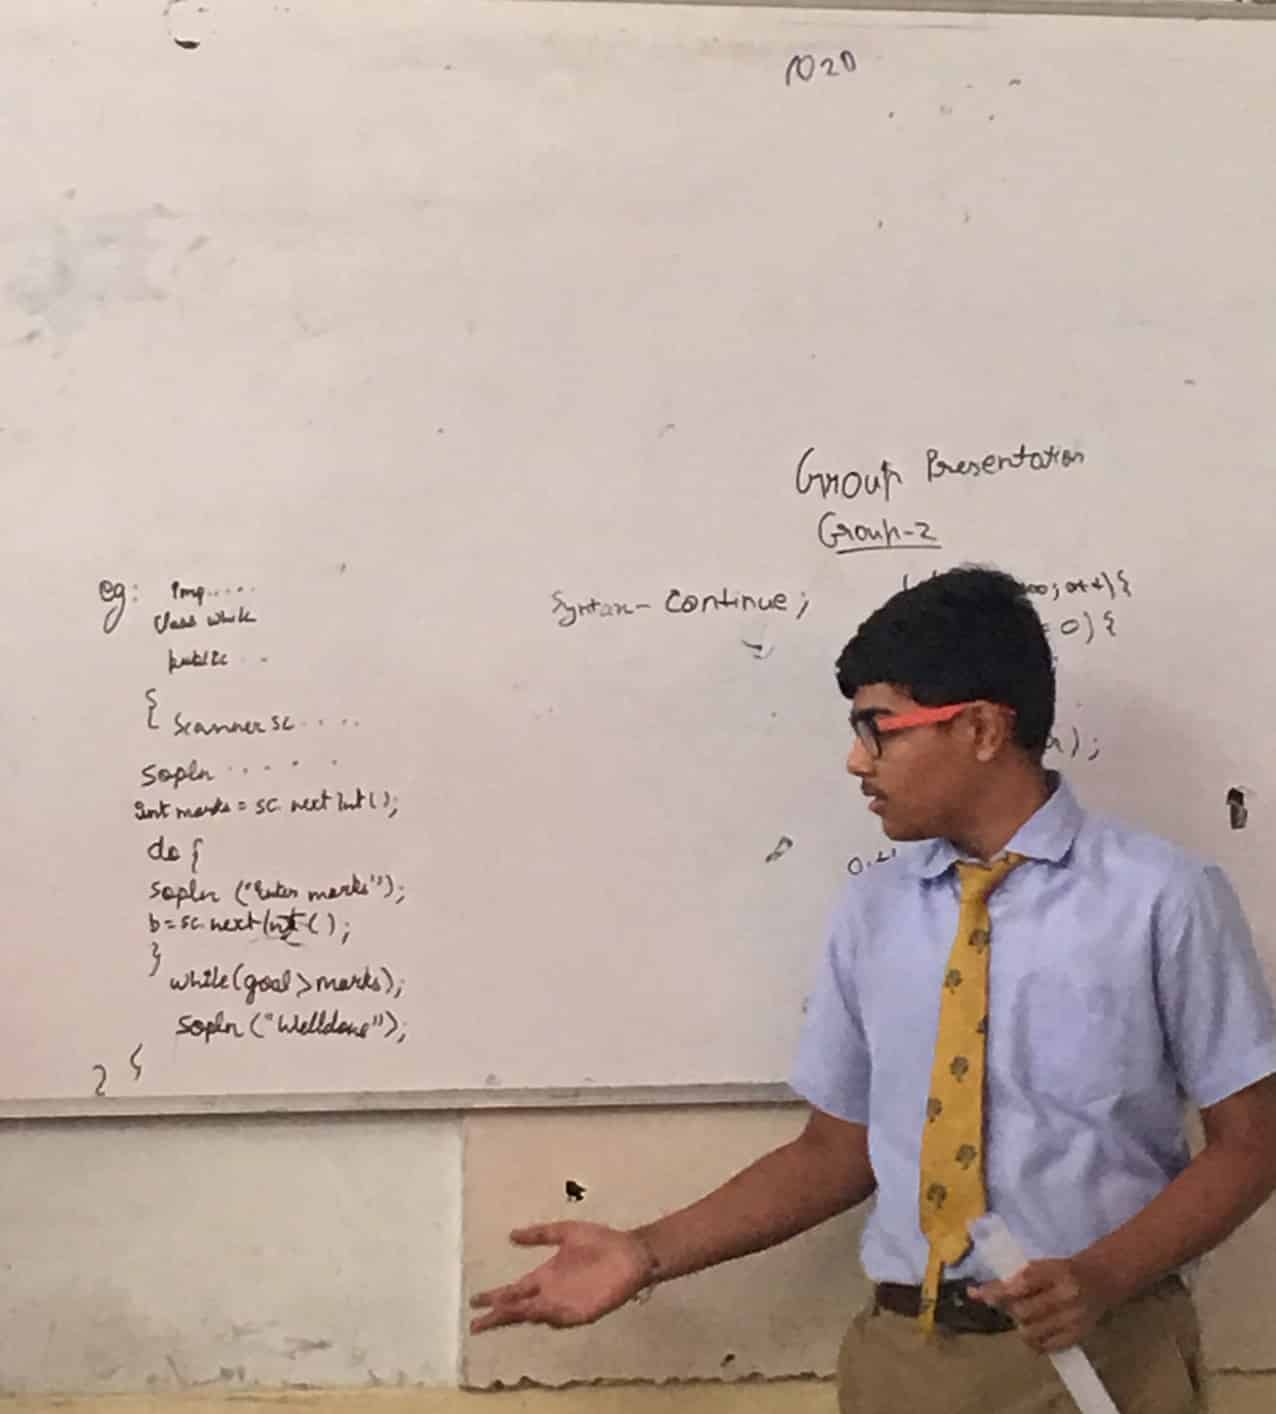 Group Presentation
Group-2
eg: Imp.....
Class while
public ..
{ Scanner sc ....
Sopln .....
int marks = sc. next Int ();
do {
Sopln ("Enter marks");
b = sc. next Int ();
}
while (goal > marks);
Sopln ("Welldone");
Syntax - Continue;
= 0) {
);